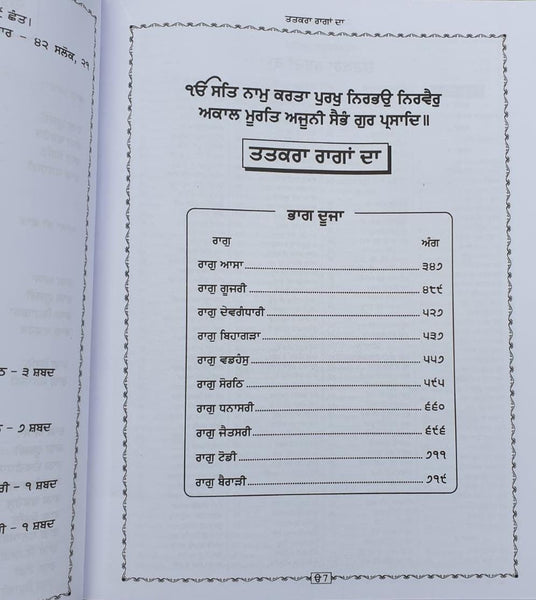 ਛੰਤ।
੪੨ ਸਲੋਕ, ੨੧
– ੩ ਸ਼ਬਦ
– ੭ ਸ਼ਬਦ
– ੧ ਸ਼ਬਦ
– ੧ ਸ਼ਬਦ
ਤਤਕਰਾ ਰਾਗਾਂ ਦਾ
ੴ ਸਤਿ ਨਾਮੁ ਕਰਤਾ ਪੁਰਖੁ ਨਿਰਭਉ ਨਿਰਵੈਰੁ
ਅਕਾਲ ਮੂਰਤਿ ਅਜੂਨੀ ਸੈਭੰ ਗੁਰ ਪ੍ਰਸਾਦਿ॥
ਤਤਕਰਾ ਰਾਗਾਂ ਦਾ
ਭਾਗ ਦੂਜਾ
ਰਾਗੁ ਅੰਗ
ਰਾਗੁ ਆਸਾ ੩੪੭
ਰਾਗੁ ਗੂਜਰੀ ੪੮੯
ਰਾਗੁ ਦੇਵਗੰਧਾਰੀ ੫੨੭
ਰਾਗੁ ਬਿਹਾਗੜਾ ੫੩੭
ਰਾਗੁ ਵਡਹੰਸੁ ੫੫੭
ਰਾਗੁ ਸੋਰਠਿ ੫੯੫
ਰਾਗੁ ਧਨਾਸਰੀ ੬੬੦
ਰਾਗੁ ਜੈਤਸਰੀ ੬੯੬
ਰਾਗੁ ਟੋਡੀ ੭੧੧
ਰਾਗੁ ਬੈਰਾੜੀ ੭੧੯